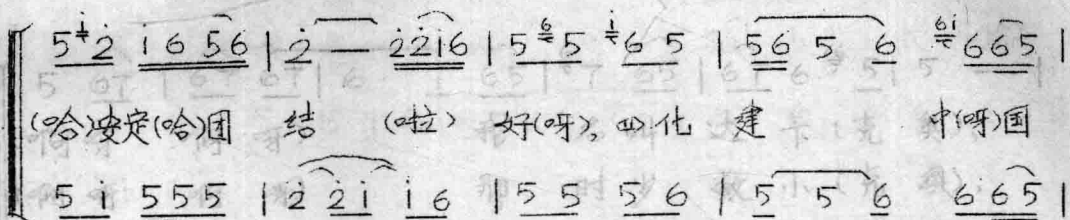 5 i̇ 2̇ i̇ 6 5 6 | 2̇ — 2̇ 2̇ i̇ 6 | 5 6 5 i̇ 6 5 | 5 6 5 6 6 i̇ 6 6 5 |
(哈)安定(哈)团 结 (啦) 好(呀), 四化 建 中(呀)国
5 i̇ 5 5 5 | 2̇ 2̇ i̇ i̇ 6 | 5 5 5 6 | 5 5 6 6 6 5 |